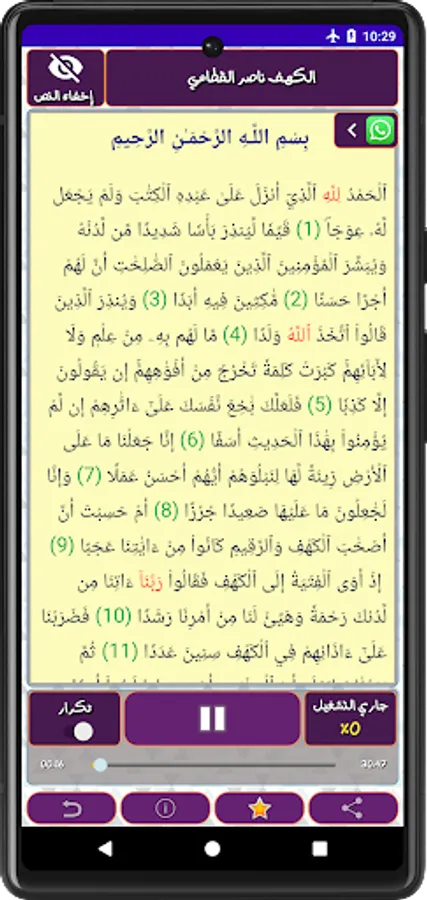 10:29
الكهف ناصر القطامي
إخفاء النص
بِسْمِ اللَّهِ الرَّحْمَٰنِ الرَّحِيمِ
ٱلْحَمْدُ لِلَّهِ ٱلَّذِيٓ أَنزَلَ عَلَىٰ عَبْدِهِ ٱلْكِتَٰبَ وَلَمْ يَجْعَل
لَّهُۥ عِوَجَاۜ (1) قَيِّمٗا لِّيُنذِرَ بَأْسٗا شَدِيدٗا مِّن لَّدُنْهُ
وَيُبَشِّرَ ٱلْمُؤْمِنِينَ ٱلَّذِينَ يَعْمَلُونَ ٱلصَّٰلِحَٰتِ أَنَّ لَهُمْ
أَجْرًا حَسَنٗا (2) مَّٰكِثِينَ فِيهِ أَبَدٗا (3) وَيُنذِرَ ٱلَّذِينَ
قَالُواْ ٱتَّخَذَ ٱللَّهُ وَلَدٗا (4) مَّا لَهُم بِهِۦ مِنْ عِلْمٖ وَلَا
لِأٓبَآئِهِمْۚ كَبُرَتْ كَلِمَةٗ تَخْرُجُ مِنْ أَفْوَٰهِهِمْۚ إِن يَقُولُونَ
إِلَّا كَذِبٗا (5) فَلَعَلَّكَ بَٰخِعٞ نَّفْسَكَ عَلَىٰٓ ءَاثَٰرِهِمْ إِن لَّمْ
يُؤْمِنُواْ بِهَٰذَا ٱلْحَدِيثِ أَسَفًا (6) إِنَّا جَعَلْنَا مَا عَلَى
ٱلْأَرْضِ زِينَةٗ لَّهَا لِنَبْلُوَهُمْ أَيُّهُمْ أَحْسَنُ عَمَلٗا (7) وَإِنَّا
لَجَٰعِلُونَ مَا عَلَيْهَا صَعِيدٗا جُرُزًا (8) أَمْ حَسِبْتَ أَنَّ
أَصْحَٰبَ ٱلْكَهْفِ وَٱلرَّقِيمِ كَانُواْ مِنْ ءَايَٰتِنَا عَجَبًا (9)
إِذْ أَوَى ٱلْفِتْيَةُ إِلَى ٱلْكَهْفِ فَقَالُواْ رَبَّنَآ ءَاتِنَا مِن
لَّدُنكَ رَحْمَةٗ وَهَيِّئْ لَنَا مِنْ أَمْرِنَا رَشَدٗا (10) فَضَرَبْنَا
عَلَىٰٓ ءَاذَانِهِمْ فِي ٱلْكَهْفِ سِنِينَ عَدَدٗا (11) ثُمَّ
جاري التشغيل
%0
تكرار